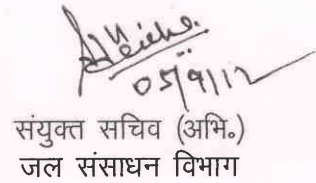 05/9/12
संयुक्त सचिव (अभि॰)
जल संसाधन विभाग